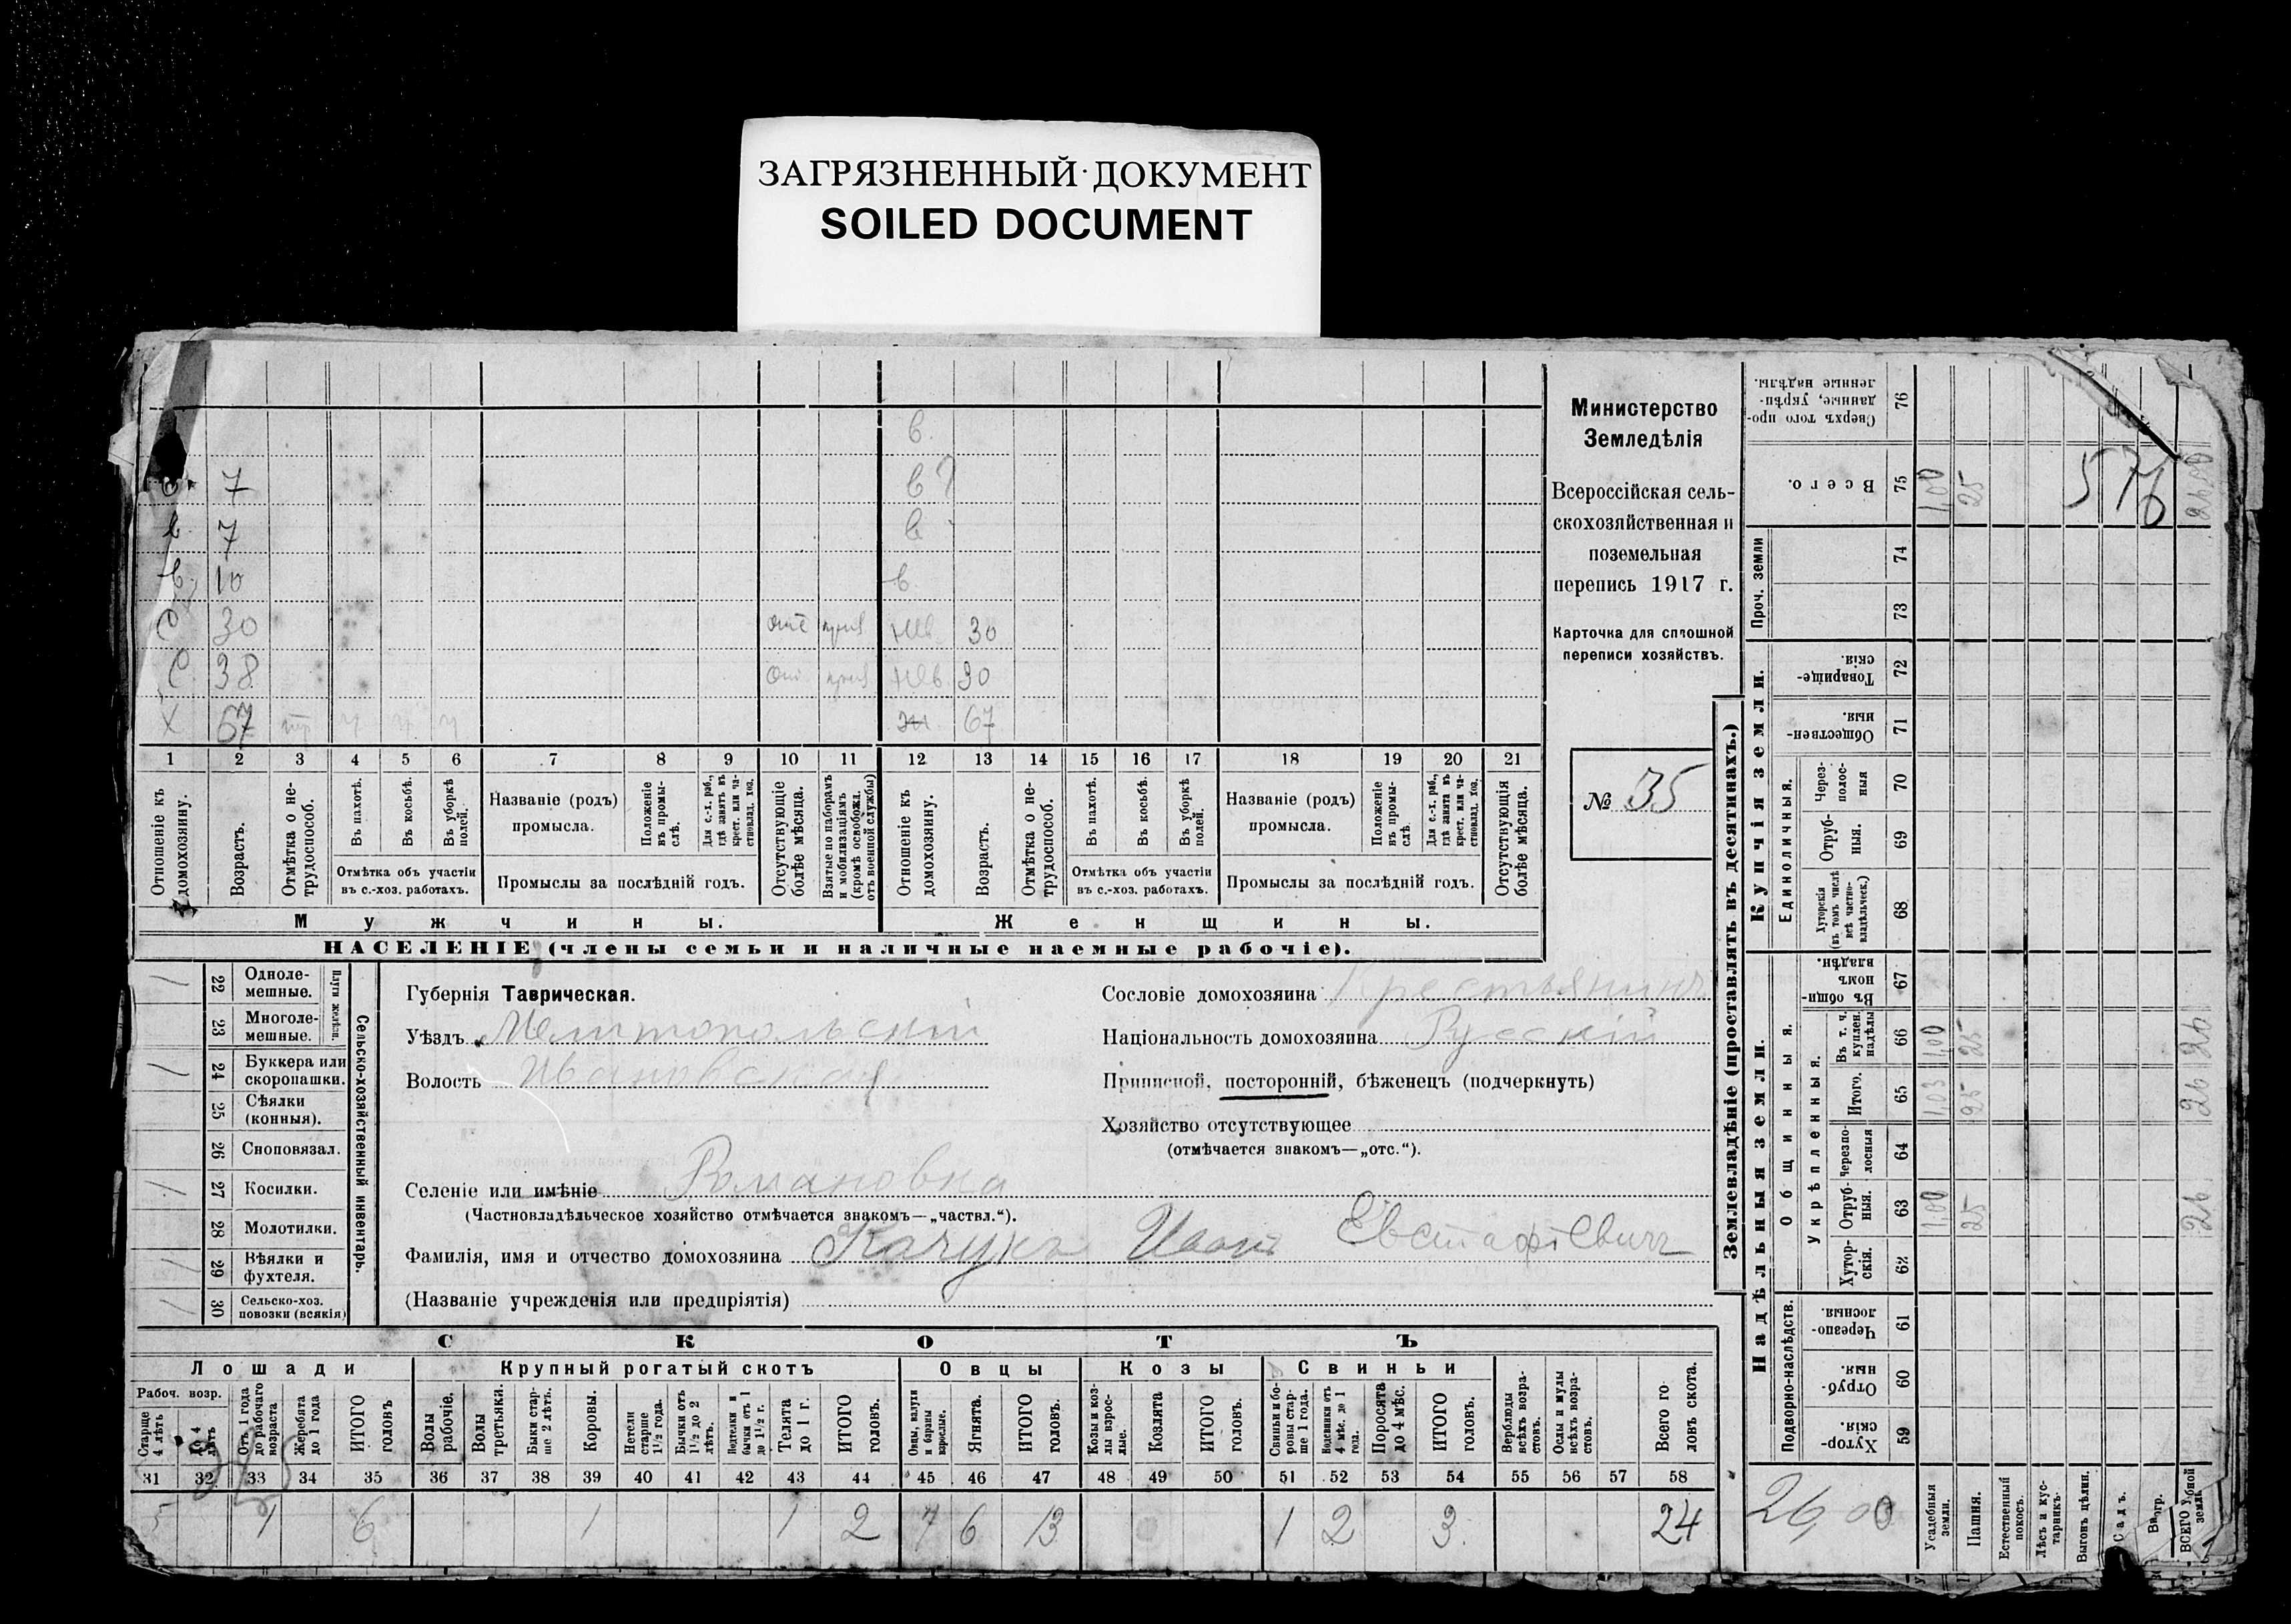 ЗАГРЯЗНЕННЫЙ ДОКУМЕНТ
SOILED DOCUMENT
в.
7 в
в. 7 в
в. 10 в.
С 30 нев. 30
С 38 нев. 30
Х 67 67
1 2 3 4 5 6 7 8 9 10 11 12 13 14 15 16 17 18 19 20 21
Отношеніе къ домохозяину.
Возрастъ.
Отмѣтка о нетрудоспособ.
Въ пахотѣ.
Въ косьбѣ.
Въ уборкѣ полей.
Отмѣтка объ участіи въ с.-хоз. работахъ.
Названіе (родъ) промысла.
Положеніе въ промыслѣ.
Для с.-х. раб., гдѣ занятъ въ крест. или частновлад. хоз.
Промыслы за послѣдній годъ.
Отсутствующіе болѣе мѣсяца.
Взятые по наборамъ и мобилизаціямъ (кромѣ освобожд. отъ военной службы)
Отношеніе къ домохозяину.
Возрастъ.
Отмѣтка о нетрудоспособ.
Въ пахотѣ.
Въ косьбѣ.
Въ уборкѣ полей.
Отмѣтка объ участіи въ с.-хоз. работахъ.
Названіе (родъ) промысла.
Положеніе въ промыслѣ.
Для с.-х. раб., гдѣ занята въ крест. или частновлад. хоз.
Промыслы за послѣдній годъ.
Отсутствующія болѣе мѣсяца.
Мужчины. Женщины.
НАСЕЛЕНІЕ (члены семьи и наличные наемные рабочіе).
Министерство
Земледѣлія
Всероссійская сель-
скохозяйственная и
поземельная
перепись 1917 г.
Карточка для сплошной
переписи хозяйствъ.
№ 35
Сельско-хозяйственный инвентарь.
Плуги желѣзн.
/ 22 Одноле-мешные.
23 Многоле-мешные.
/ 24 Буккера или скоропашки.
25 Сѣялки (конныя).
26 Сноповязал.
/ 27 Косилки.
28 Молотилки.
/ 29 Вѣялки и фухтеля.
/ 30 Сельско-хоз. повозки (всякія)
Губернія Таврическая.
Уѣздъ Мелитопольскій
Волость Ивановская
Сословіе домохозяина Крестьянинъ
Національность домохозяина Русскій
Приписной, посторонній, бѣженецъ (подчеркнуть)
Хозяйство отсутствующее
(отмѣчается знакомъ—„отс.“).
Селеніе или имѣніе Романовка
(Частновладѣльческое хозяйство отмѣчается знакомъ—„частвл.“).
Фамилія, имя и отчество домохозяина Качука Иванъ Евстафіевичъ
(Названіе учрежденія или предпріятія)
СКОТЪ
Лошади Крупный рогатый скотъ Овцы Козы Свиньи
Рабоч. возр.
Старше 4 лѣтъ
До 4 лѣтъ
Отъ 1 года до рабочаго возраста
Жеребята до 1 года
ИТОГО головъ
Волы рабочіе.
Волы третьяки.
Быки старше 2 лѣтъ.
Коровы.
Нетели старше 1½ года.
Бычки отъ 1½ до 2 лѣтъ.
Подтелки и бычки отъ 1 до 1½ г.
Телята до 1 г.
ИТОГО головъ.
Овцы, валухи и бараны взрослые.
Ягнята.
ИТОГО головъ.
Козы и козлы взрослые.
Козлята
ИТОГО головъ.
Свиньи и боровы старше 1 года.
Подсвинки отъ 4 мѣс. до 1 года.
Поросята до 4 мѣс.
ИТОГО головъ.
Верблюды всѣхъ возрастовъ.
Ослы и мулы всѣхъ возрастовъ.
Всего головъ скота.
31 32 33 34 35 36 37 38 39 40 41 42 43 44 45 46 47 48 49 50 51 52 53 54 55 56 57 58
5 1 6 1 1 2 7 6 13 1 2 3 24
Землевладѣніе (проставлять въ десятинахъ.)
Надѣльныя земли. Купчія земли. Проч. земли
Подворно-наслѣдств. Общинныя. Укрѣпленныя. Единоличныя.
Сверхъ того проданные, укрѣпленные надѣлы. 76
Всего. 75 1,00 25 576 26,00
74
73
Товарищескія. 72
Общественныя. 71
Черезполосныя 70
Отрубныя. 69
Хуторскія (въ томъ числѣ всѣ частновладѣльческ.) 68
Въ общинномъ владѣн. 67
Въ т. ч. куплен. надѣлы 66 1,00 25 26
Итого. 65 1,03 25 26
Черезполосныя 64
Отрубныя. 63 1,00 25 26
Хуторскія. 62
Черезполосныя. 61
Отрубныя. 60
Хуторскія. 59
26,00
Усадебныя земли.
Пашня.
Естественный покосъ.
Лѣсъ и кустарникъ.
Выгонъ цѣлин.
Садъ.
ВСЕГО удобной земли